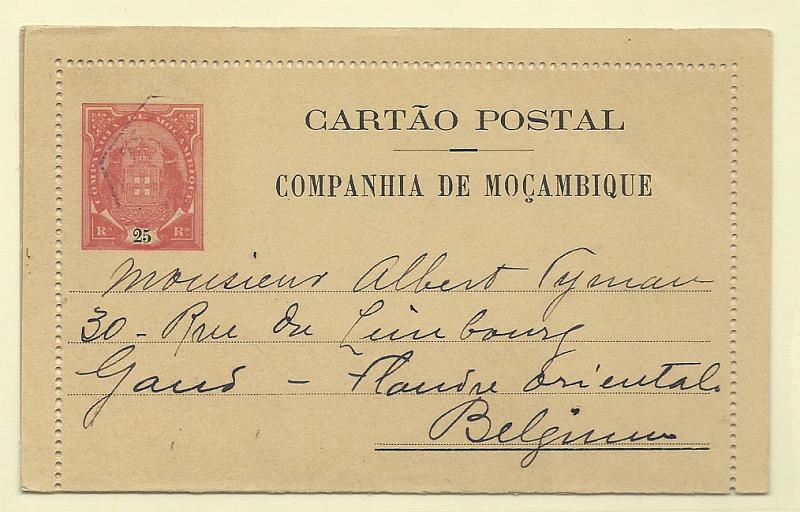 CARTÃO POSTAL
COMPANHIA DE MOÇAMBIQUE
COMPANHIA DE MOÇAMBIQUE
Rs 25 Rs
Monsieur Albert
30 - Rue du Limbourg
Gand - Flandre Orientale
Belgium